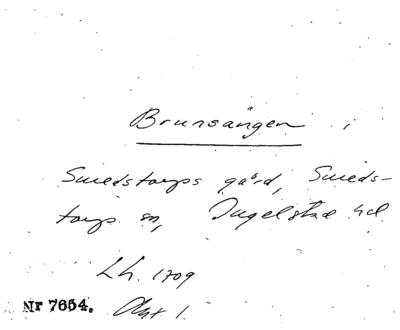 Brunsängen i
Smedstorps gård, Smeds-
torps sn, Ingelstad hd
Lh. 1709
Nr 7654. Akt 1.